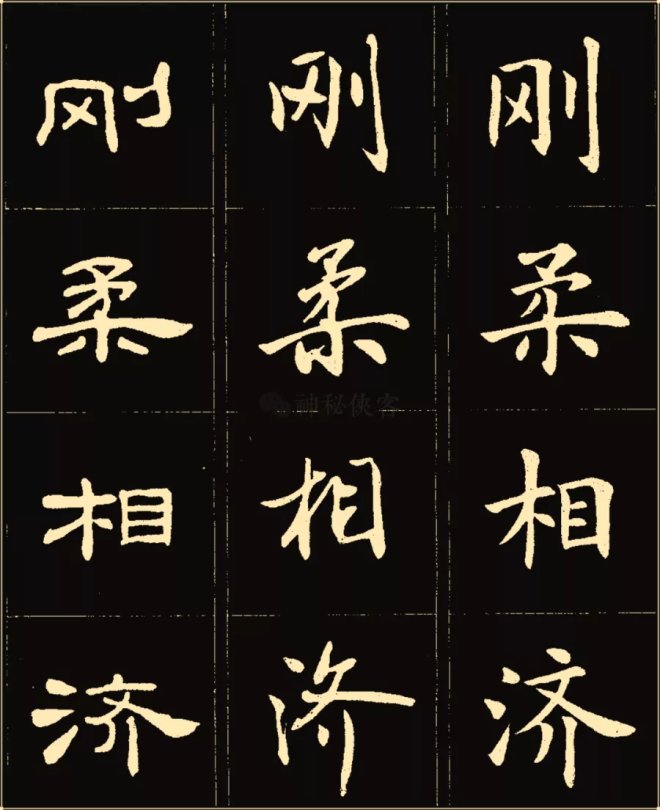 刚 刚 刚
柔 柔 柔
神秘侠客
相 相 相
济 济 济